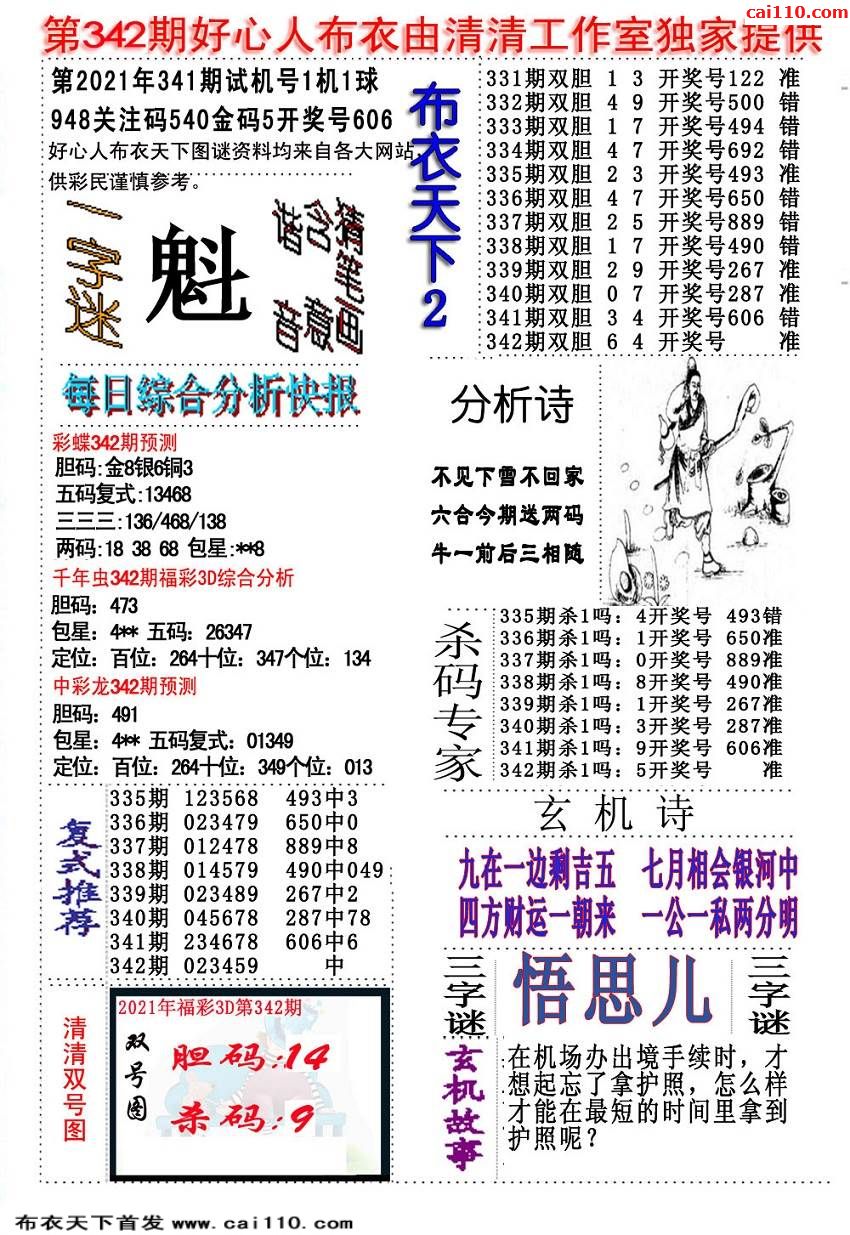 cai110.com
第342期好心人布衣由清清工作室独家提供
第2021年341期试机号1机1球
948关注码540金码5开奖号606
好心人布衣天下图谜资料均来自各大网站，
供彩民谨慎参考。
一字迷
魁
猜笔画
含意
谐音
布衣天下2
331期双胆 1 3 开奖号122 准
332期双胆 4 9 开奖号500 错
333期双胆 1 7 开奖号494 错
334期双胆 4 7 开奖号692 错
335期双胆 2 3 开奖号493 准
336期双胆 4 7 开奖号650 错
337期双胆 2 5 开奖号889 错
338期双胆 1 7 开奖号490 错
339期双胆 2 9 开奖号267 准
340期双胆 0 7 开奖号287 准
341期双胆 3 4 开奖号606 错
342期双胆 6 4 开奖号 准
每日综合分析快报
彩蝶342期预测
胆码:金8银6铜3
五码复式:13468
三三三:136/468/138
两码:18 38 68 包星:**8
千年虫342期福彩3D综合分析
胆码：473
包星：4** 五码：26347
定位：百位：264十位：347个位：134
中彩龙342期预测
胆码：491
包星：4** 五码复式：01349
定位：百位：264十位：349个位：013
分析诗
不见下雪不回家
六合今期送两码
牛一前后三相随
杀码专家
335期杀1吗：4开奖号 493错
336期杀1吗：1开奖号 650准
337期杀1吗：0开奖号 889准
338期杀1吗：8开奖号 490准
339期杀1吗：1开奖号 267准
340期杀1吗：3开奖号 287准
341期杀1吗：9开奖号 606准
342期杀1吗：5开奖号 准
复式推荐
335期 123568 493中3
336期 023479 650中0
337期 012478 889中8
338期 014579 490中049
339期 023489 267中2
340期 045678 287中78
341期 234678 606中6
342期 023459 中
玄机诗
九在一边剩吉五 七月相会银河中
四方财运一朝来 一公一私两分明
三字谜
悟思儿
三字谜
清清双号图
2021年福彩3D第342期
双号图
胆码:14
杀码:9
玄机故事
在机场办出境手续时，才
想起忘了拿护照，怎么样
才能在最短的时间里拿到
护照呢？
布衣天下首发 www.cai110.com